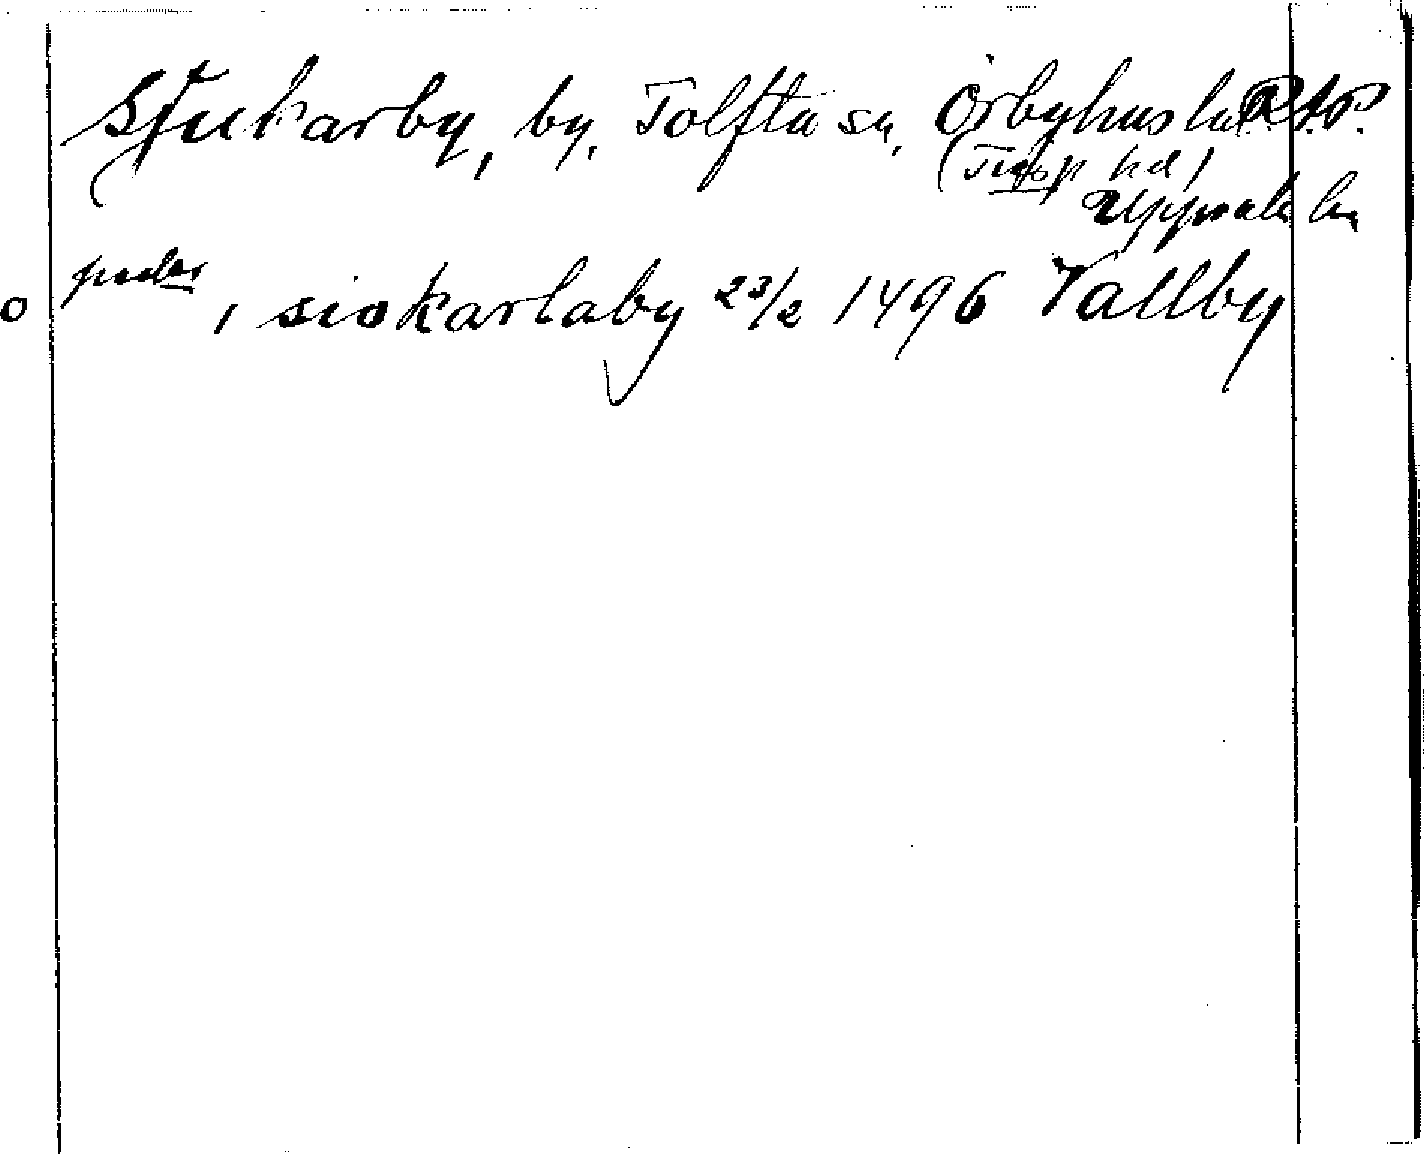 Sjukarby, by, Tolfta sn, Örbyhus hd RAP.
(Tierp hd)
Uppsala län
peder
o i siokarlaby 23/2 1496 Vallby